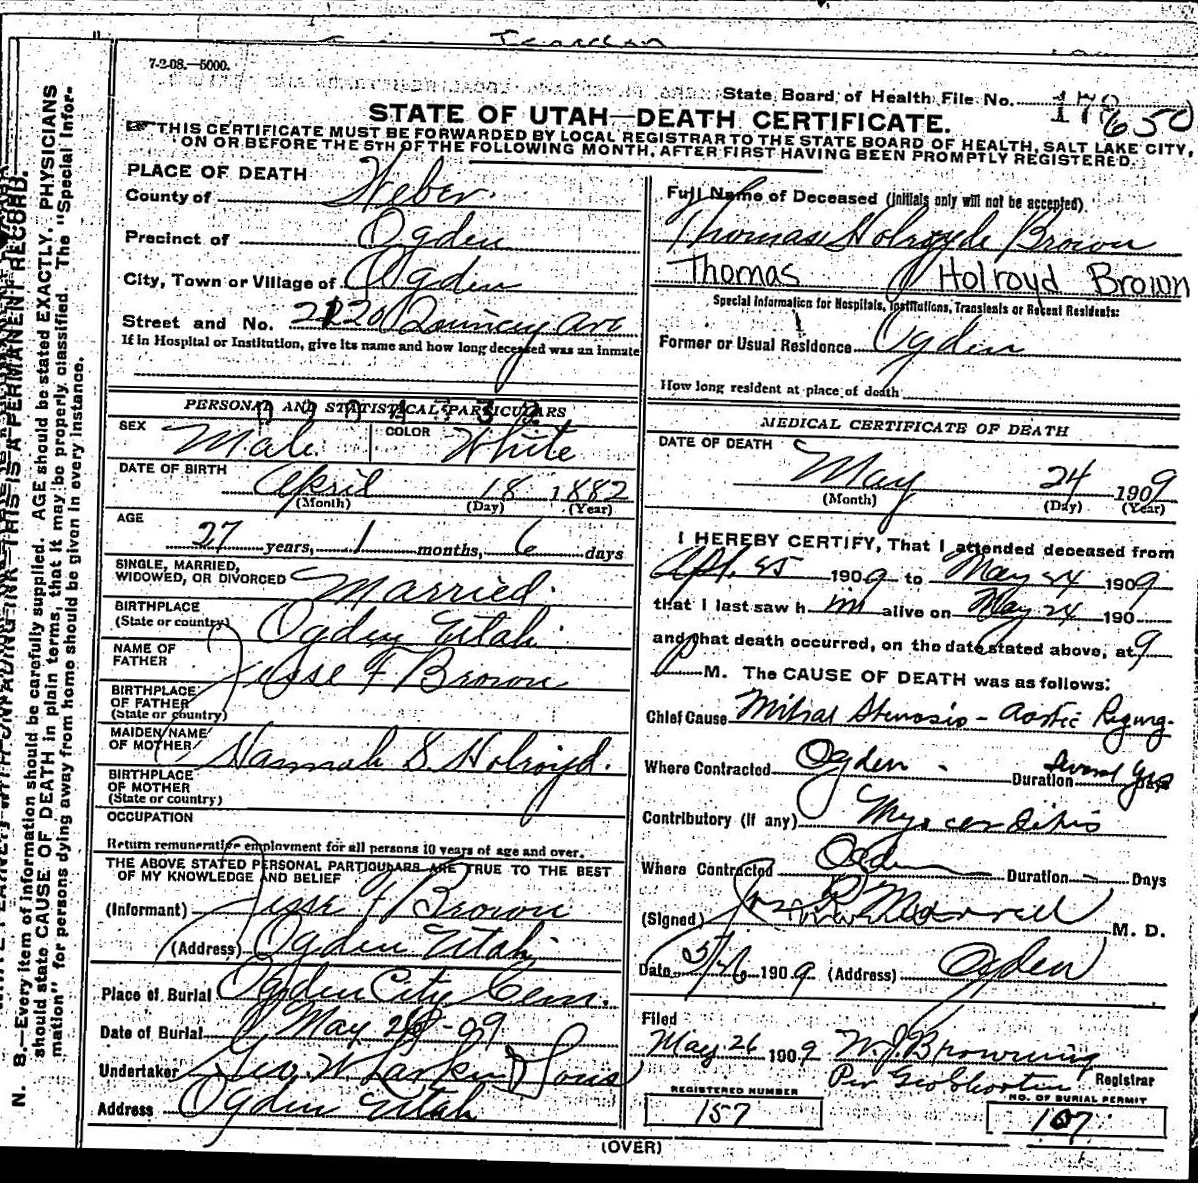 7-2-08.—5000.
State Board of Health File No. 178 650
STATE OF UTAH—DEATH CERTIFICATE.
THIS CERTIFICATE MUST BE FORWARDED BY LOCAL REGISTRAR TO THE STATE BOARD OF HEALTH, SALT LAKE CITY,
ON OR BEFORE THE 5TH OF THE FOLLOWING MONTH, AFTER FIRST HAVING BEEN PROMPTLY REGISTERED.
PLACE OF DEATH
County of Weber
Precinct of Ogden
City, Town or Village of Ogden
Street and No. 2120 Quincy Ave
If in Hospital or Institution, give its name and how long deceased was an inmate
PERSONAL AND STATISTICAL PARTICULARS
SEX Male COLOR White
DATE OF BIRTH April 18 1882
(Month) (Day) (Year)
AGE 27 years, 1 months, 6 days
SINGLE, MARRIED,
WIDOWED, OR DIVORCED Married
BIRTHPLACE
(State or country) Ogden Utah
NAME OF
FATHER Jesse F Brown
BIRTHPLACE
OF FATHER
(State or country)
MAIDEN NAME
OF MOTHER Hannah S. Holroyd.
BIRTHPLACE
OF MOTHER
(State or country)
OCCUPATION
Return remunerative employment for all persons 10 years of age and over.
THE ABOVE STATED PERSONAL PARTICULARS ARE TRUE TO THE BEST
OF MY KNOWLEDGE AND BELIEF
(Informant) Jesse F Brown
(Address) Ogden Utah
Place of Burial Ogden City Cem.
Date of Burial May 28-09
Undertaker Geo. W. Larkin & Sons
Address Ogden Utah
Full Name of Deceased (initials only will not be accepted).
Thomas Holroyde Brown
Thomas Holroyd Brown
Special Information for Hospitals, Institutions, Transients or Recent Residents:
Former or Usual Residence Ogden
How long resident at place of death
MEDICAL CERTIFICATE OF DEATH
DATE OF DEATH
May 24 1909
(Month) (Day) (Year)
I HEREBY CERTIFY, That I attended deceased from
Apl. 25 1909 to May 24 1909
that I last saw him alive on May 24 190
and that death occurred, on the date stated above, at 9
p M. The CAUSE OF DEATH was as follows:
Chief Cause Mitral Stenosis - Aortic Regurg-
Where Contracted Ogden - Duration Several Yrs Days
Contributory (if any) Myocarditis
Where Contracted Ogden Duration - Days
(Signed) M. D.
Date 5/26 1909 (Address) Ogden
Filed
May 26 1909 W. J. Browning
Per Registrar
REGISTERED NUMBER
157
NO. OF BURIAL PERMIT
167
(OVER)
N. B.—Every item of information should be carefully supplied. AGE should be stated EXACTLY. PHYSICIANS
should state CAUSE OF DEATH in plain terms, that it may be properly classified. The "Special Infor-
mation" for persons dying away from home should be given in every instance.
THIS IS A PERMANENT RECORD.